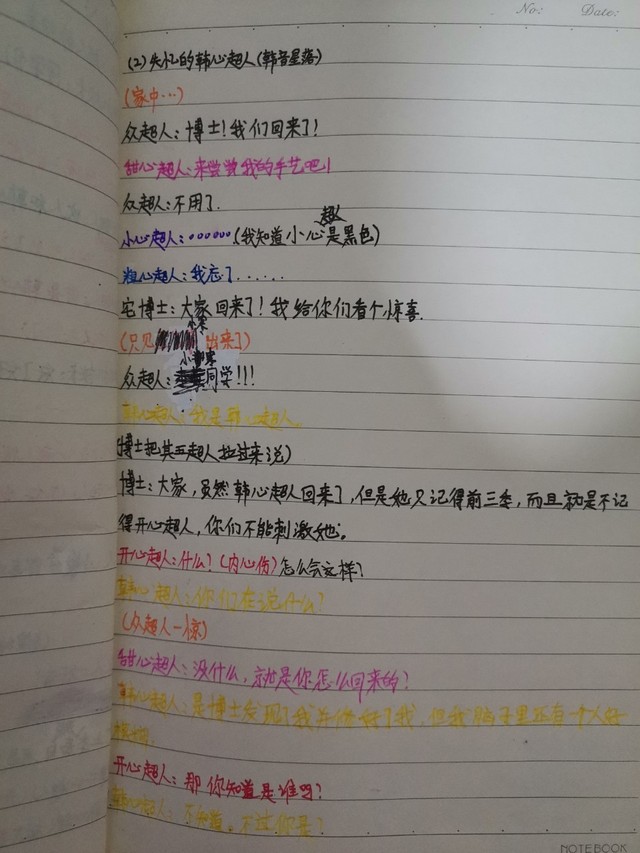 No: Date:
(2)失忆的韩心超人(韩音星落)
(家中…)
众超人:博士!我们回来了!
甜心超人:来尝尝我的手艺吧!
众超人:不用了.
超人
小心超人:。。。。。。(我知道小心是黑色)
粗心超人:我忘了......
宅博士:大家回来了!我给你们看个惊喜.
小寒
(只见 出来了)
小寒
众超人: 同学!!!
韩心超人:我是韩心超人。
(博士把其五超人拉过来说)
博士:大家,虽然韩心超人回来了,但是她只记得前三季,而且就是不记
得开心超人,你们不能刺激她。
开心超人:什么?(内心伤)怎么会这样?
韩心超人:你们在说什么?
(众超人一惊)
甜心超人:没什么,就是你怎么回来的?
韩心超人:是博士发现了我并修好了我,但我脑子里还有一个人好
开心超人:那你知道是谁吗?
韩心超人:不知道。不过你是?
NOTEBOOK